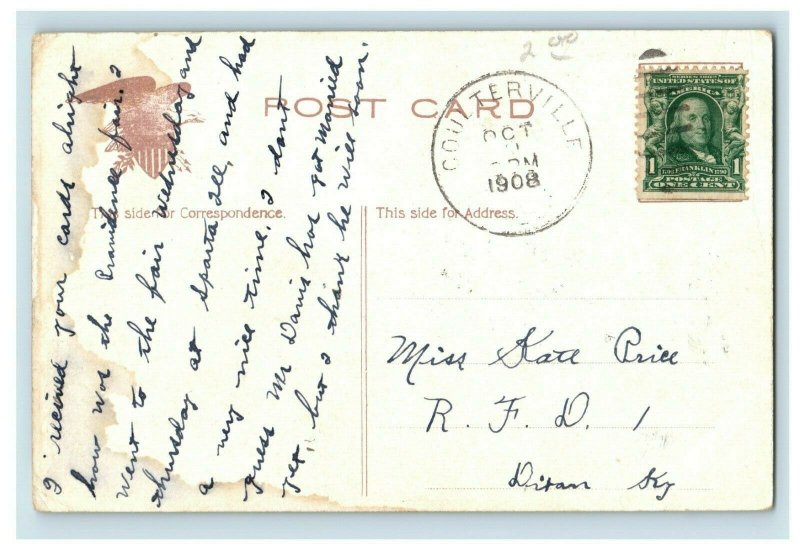 2 00
POST CARD
COULTERVILLE
OCT
PM
1908
SERIES 1902
UNITED STATES OF
AMERICA
1 1
POSTAGE
ONE CENT
This side for Correspondence.
This side for Address.
I received your cards alright
how was the fair. I
went to the fair Wednesday and
thursday at Sparta Ill, and had
a very nice time. I dont
guess Mr Davis has got married
yet, but I think he will soon.
Miss Kate Price
R. F. D. 1
Dixon Ky